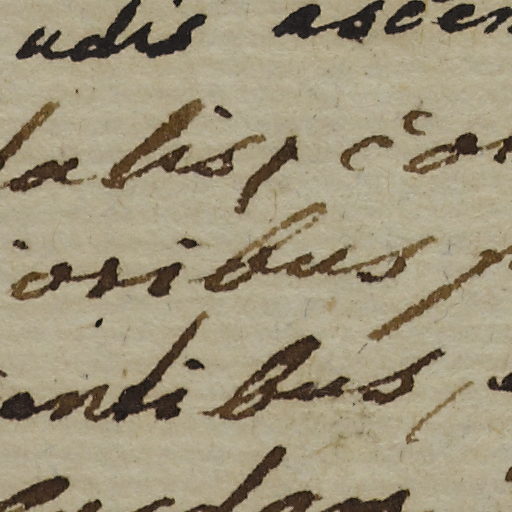 udis ascen
alis, con
joribus p
entibus,